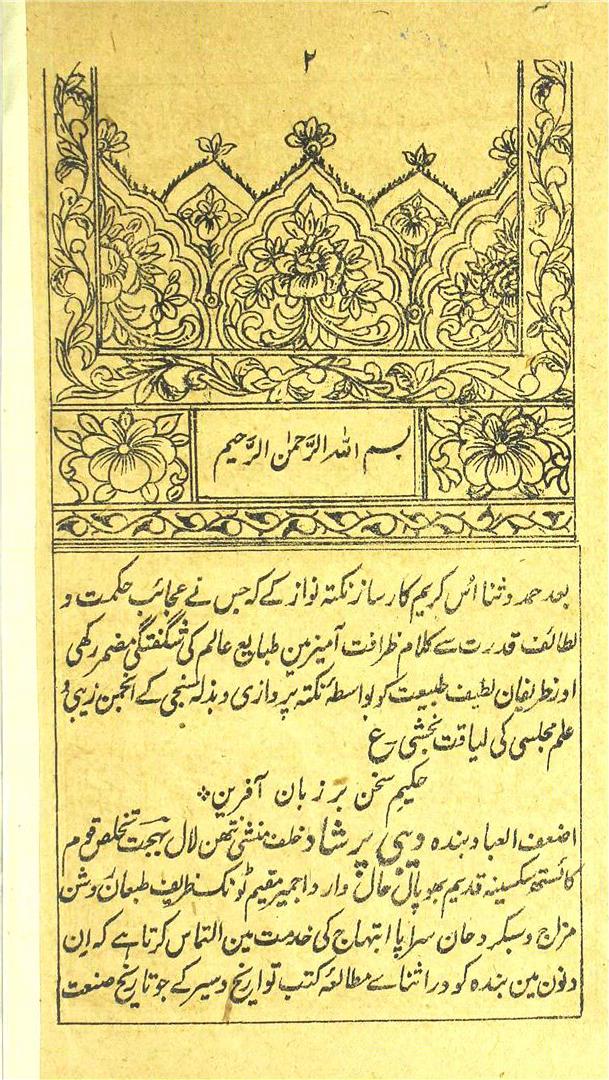 ۲
بسم اللہ الرَّحمٰن الرَّحیم
بعد حمد و ثنا اُس کریم کارساز نکتہ نواز کے کہ جس نے عجائب حکمت و
لطائف قدرت سے کلام ظرافت آمیز مین طبایع عالم کی شگفتگی مضمر رکھی
اور ظریفان لطیف طبیعت کو بواسطۂ نکتہ پردازی و بذلہ سنجی کے انجمن زیبی و
علم مجلسی کی لیاقت بخشی ع
حکیمِ سخن بر زبان آفرین
اضعف العباد بندہ دیبی پرشاد خلف منشی نتھن لال بہجت تخلص قوم
کائستھ سکسینہ قدیم بھوپالی حال وارد اجمیر مقیم ٹونک ظریف طبعان روشن
مزاج و سبکروحان سراپا ابتہاج کی خدمت مین التماس کرتا ہے کہ اِن
دنون مین بندہ کو در اثناے مطالعۂ کتب تواریخ و سیر کے جو تاریخ صنعت